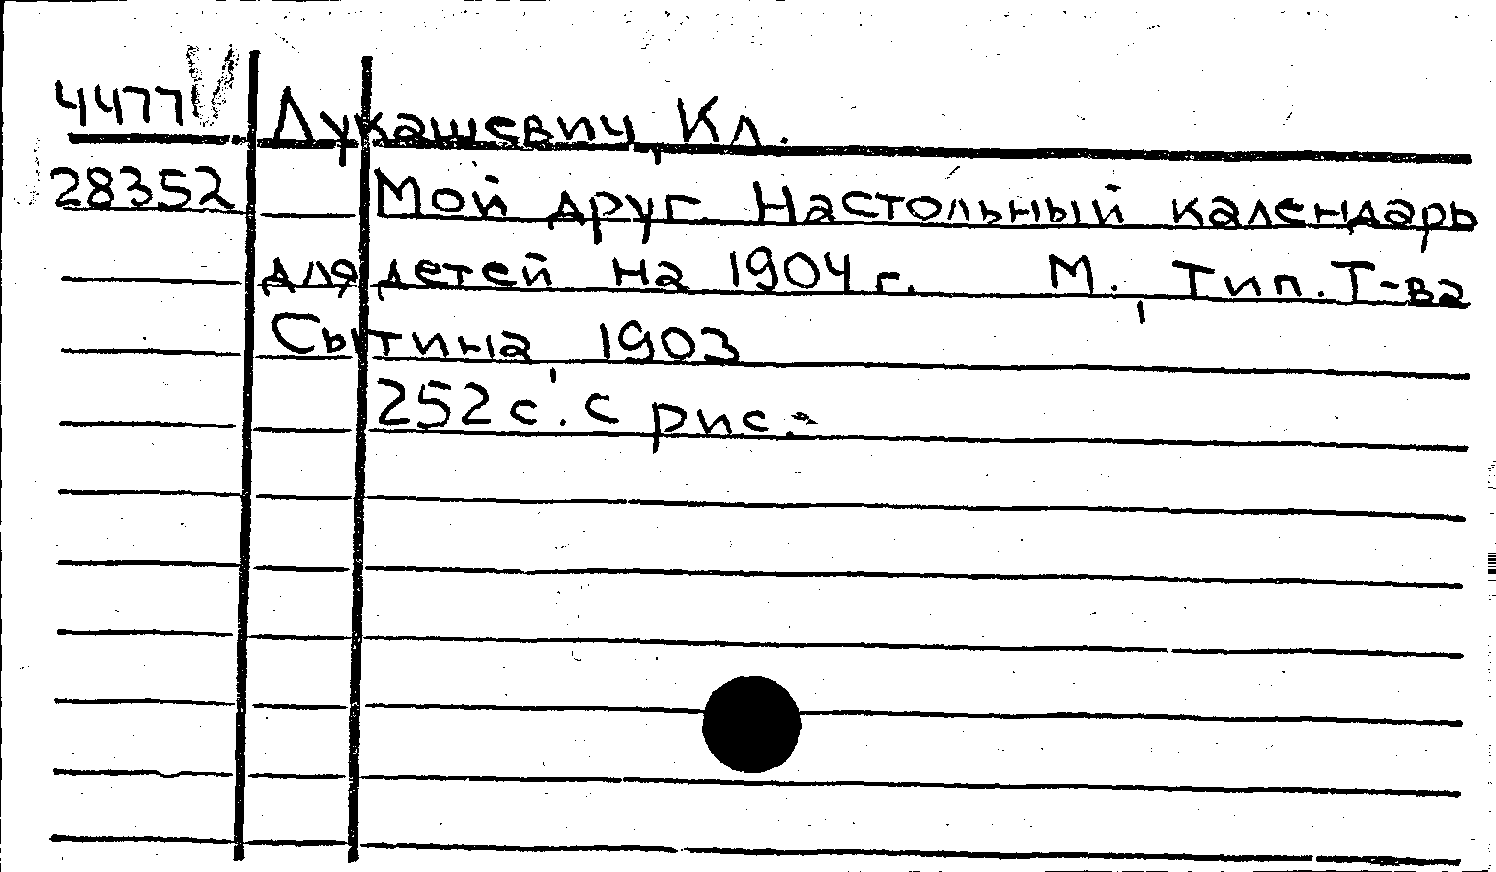 4477 V Лукашевич, Кл.
28352 Мой друг. Настольный календарь
для детей на 1904 г. М., Тип. Т-ва
Сытина, 1903
252 с. с рис.